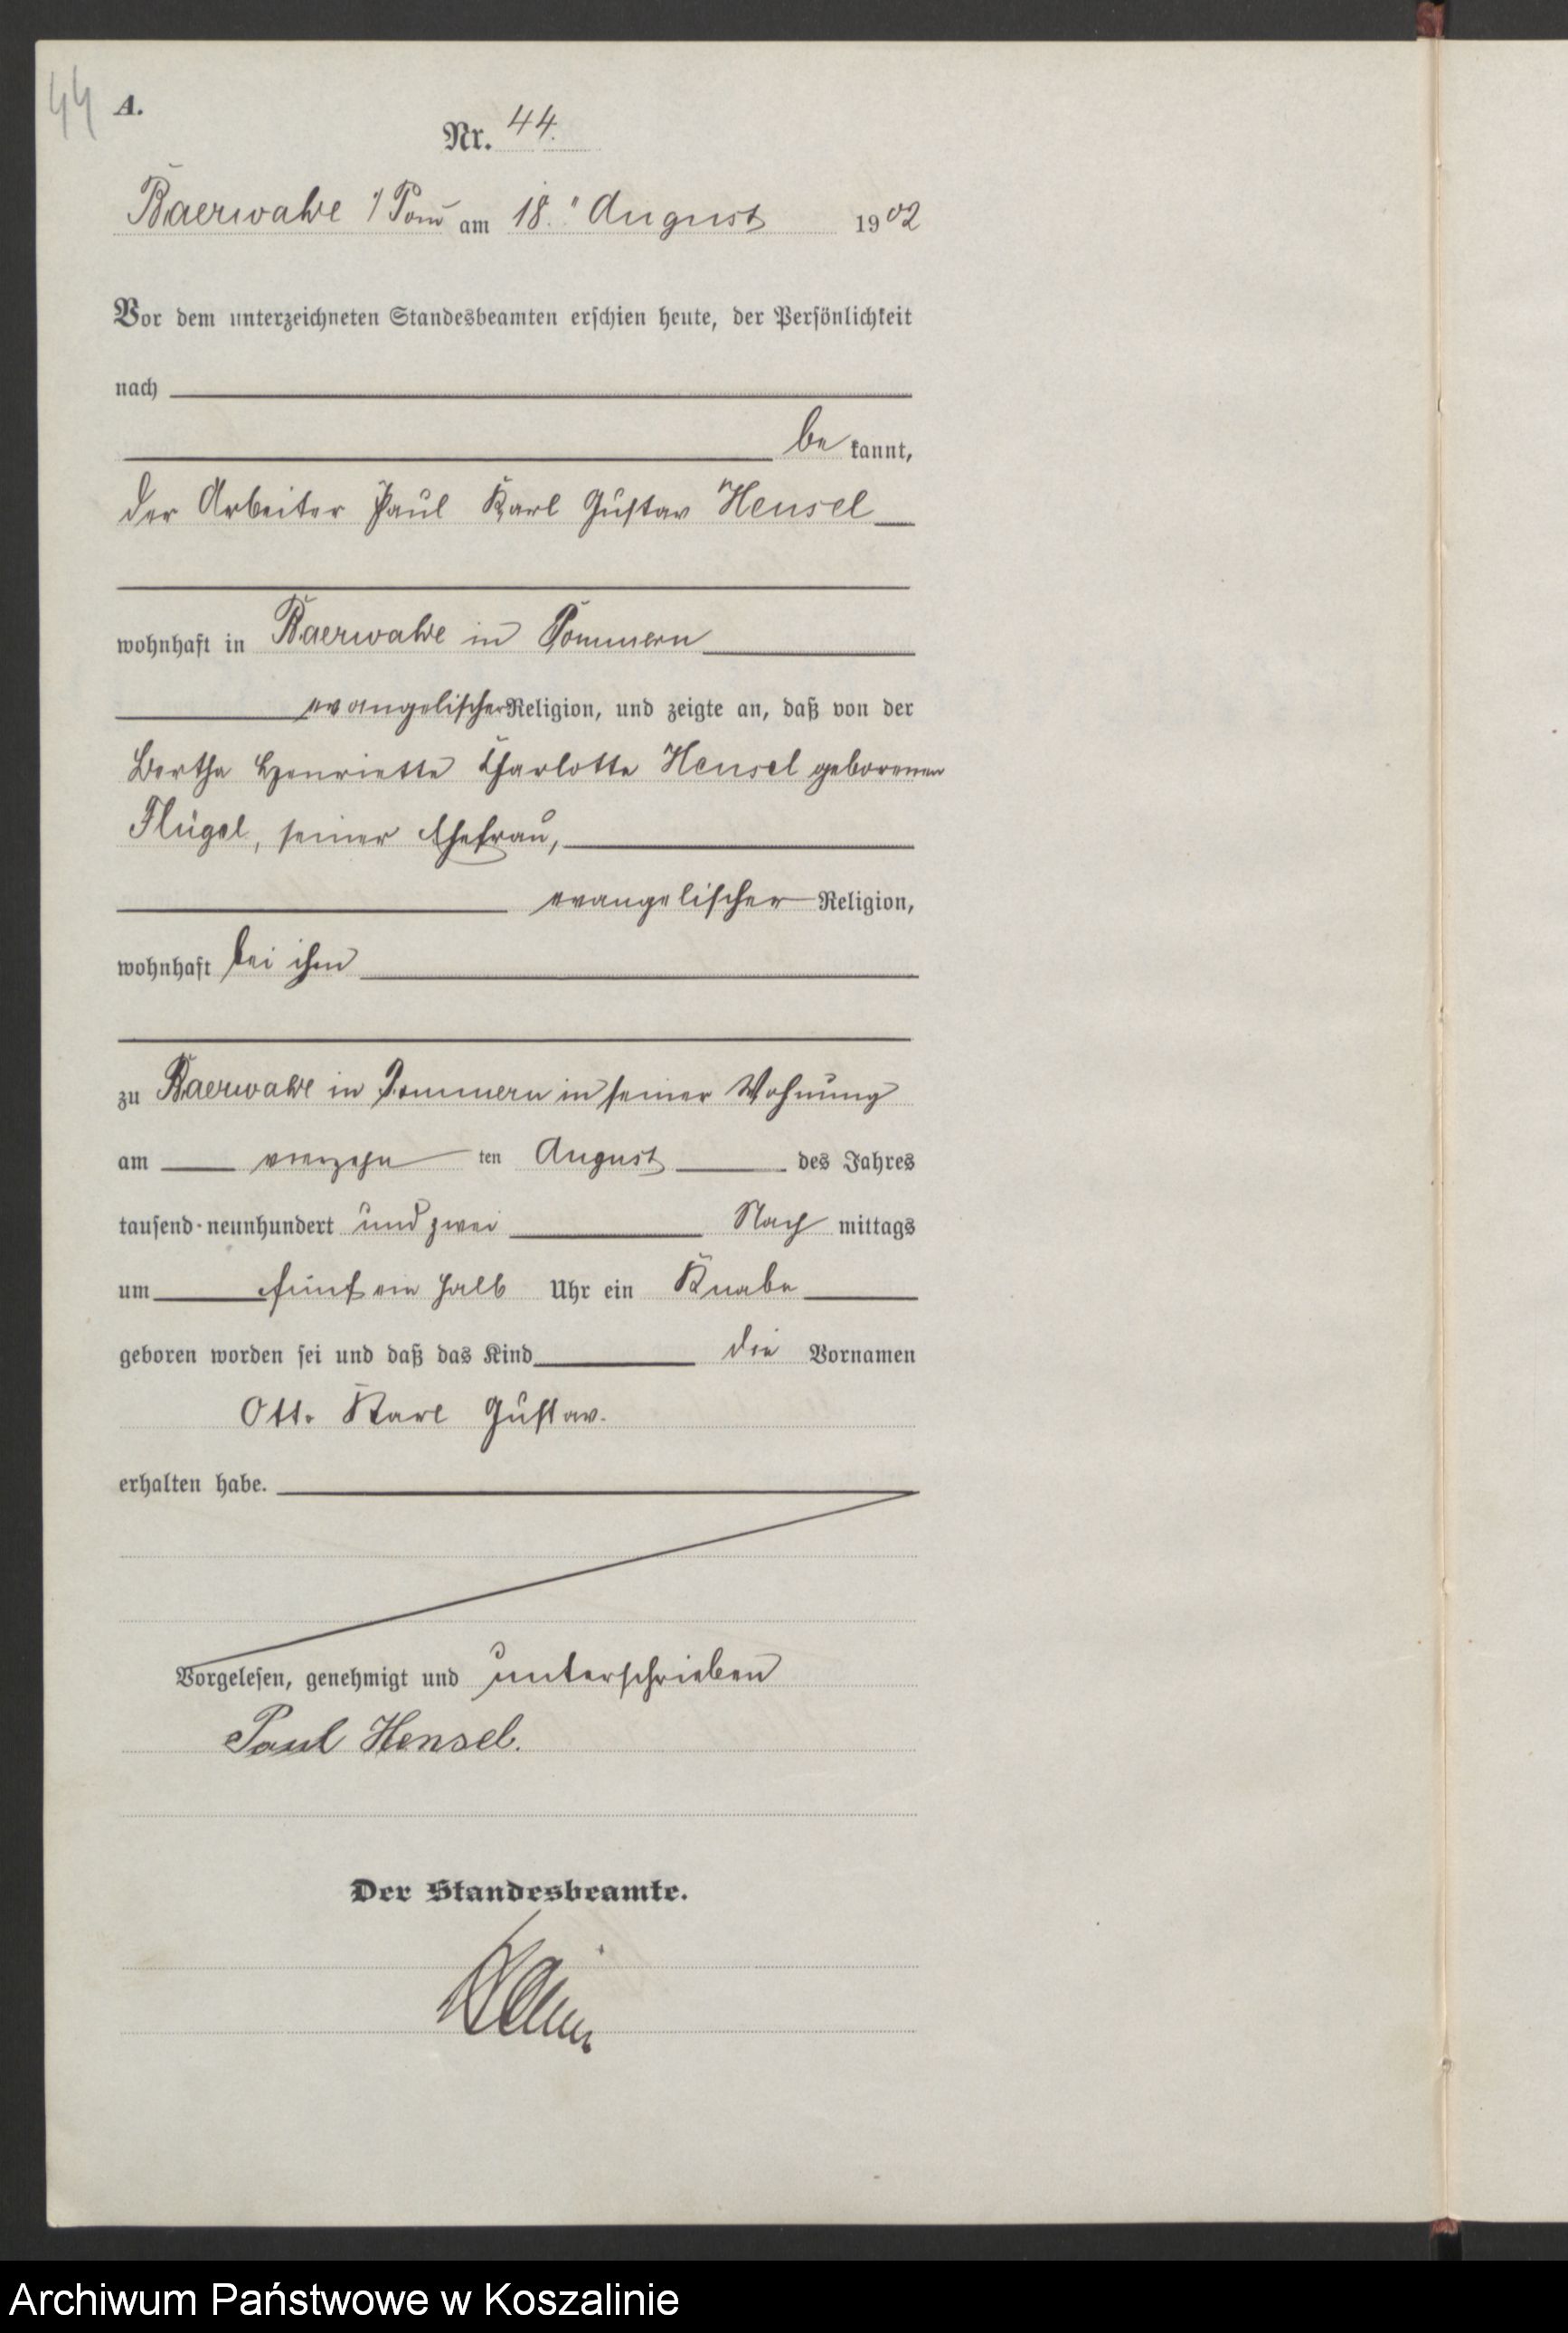 44
A.
Nr. 44.
Baerwalde i/Pom am 18. August 1902
Vor dem unterzeichneten Standesbeamten erschien heute, der Persönlichkeit
nach
be kannt,
der Arbeiter Paul Karl Gustav Hensel
wohnhaft in Baerwalde in Pommern
evangelischer Religion, und zeigte an, daß von der
Bertha Henriette Charlotte Hensel geborenen
Flügel, seiner Ehefrau,
evangelischer Religion,
wohnhaft bei ihm
zu Baerwalde in Pommern in seiner Wohnung
am vierzehn ten August des Jahres
tausend neunhundert und zwei Nach mittags
um fünf ein halb Uhr ein Knabe
geboren worden sei und daß das Kind die Vornamen
Otto Karl Gustav.
erhalten habe.
Vorgelesen, genehmigt und unterschrieben
Paul Hensel.
Der Standesbeamte.
Archiwum Państwowe w Koszalinie